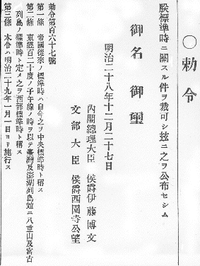 ○勅令
朕標準時ニ關スル件ヲ裁可シ茲ニ之ヲ公布セシム
御名御璽
明治二十八年十二月二十七日
內閣總理大臣 侯爵伊藤博文
文部大臣 侯爵西園寺公望
勅令第百六十七號
第一條 帝國從來ノ標準時ハ自今之ヲ中央標準時ト稱ス
第二條 東經百二十度ノ子午線ノ時ヲ以テ臺灣及澎湖列島竝ニ八重山及宮古
列島ノ標準時ト定メ之ヲ西部標準時ト稱ス
第三條 本令ハ明治二十九年一月一日ヨリ施行ス